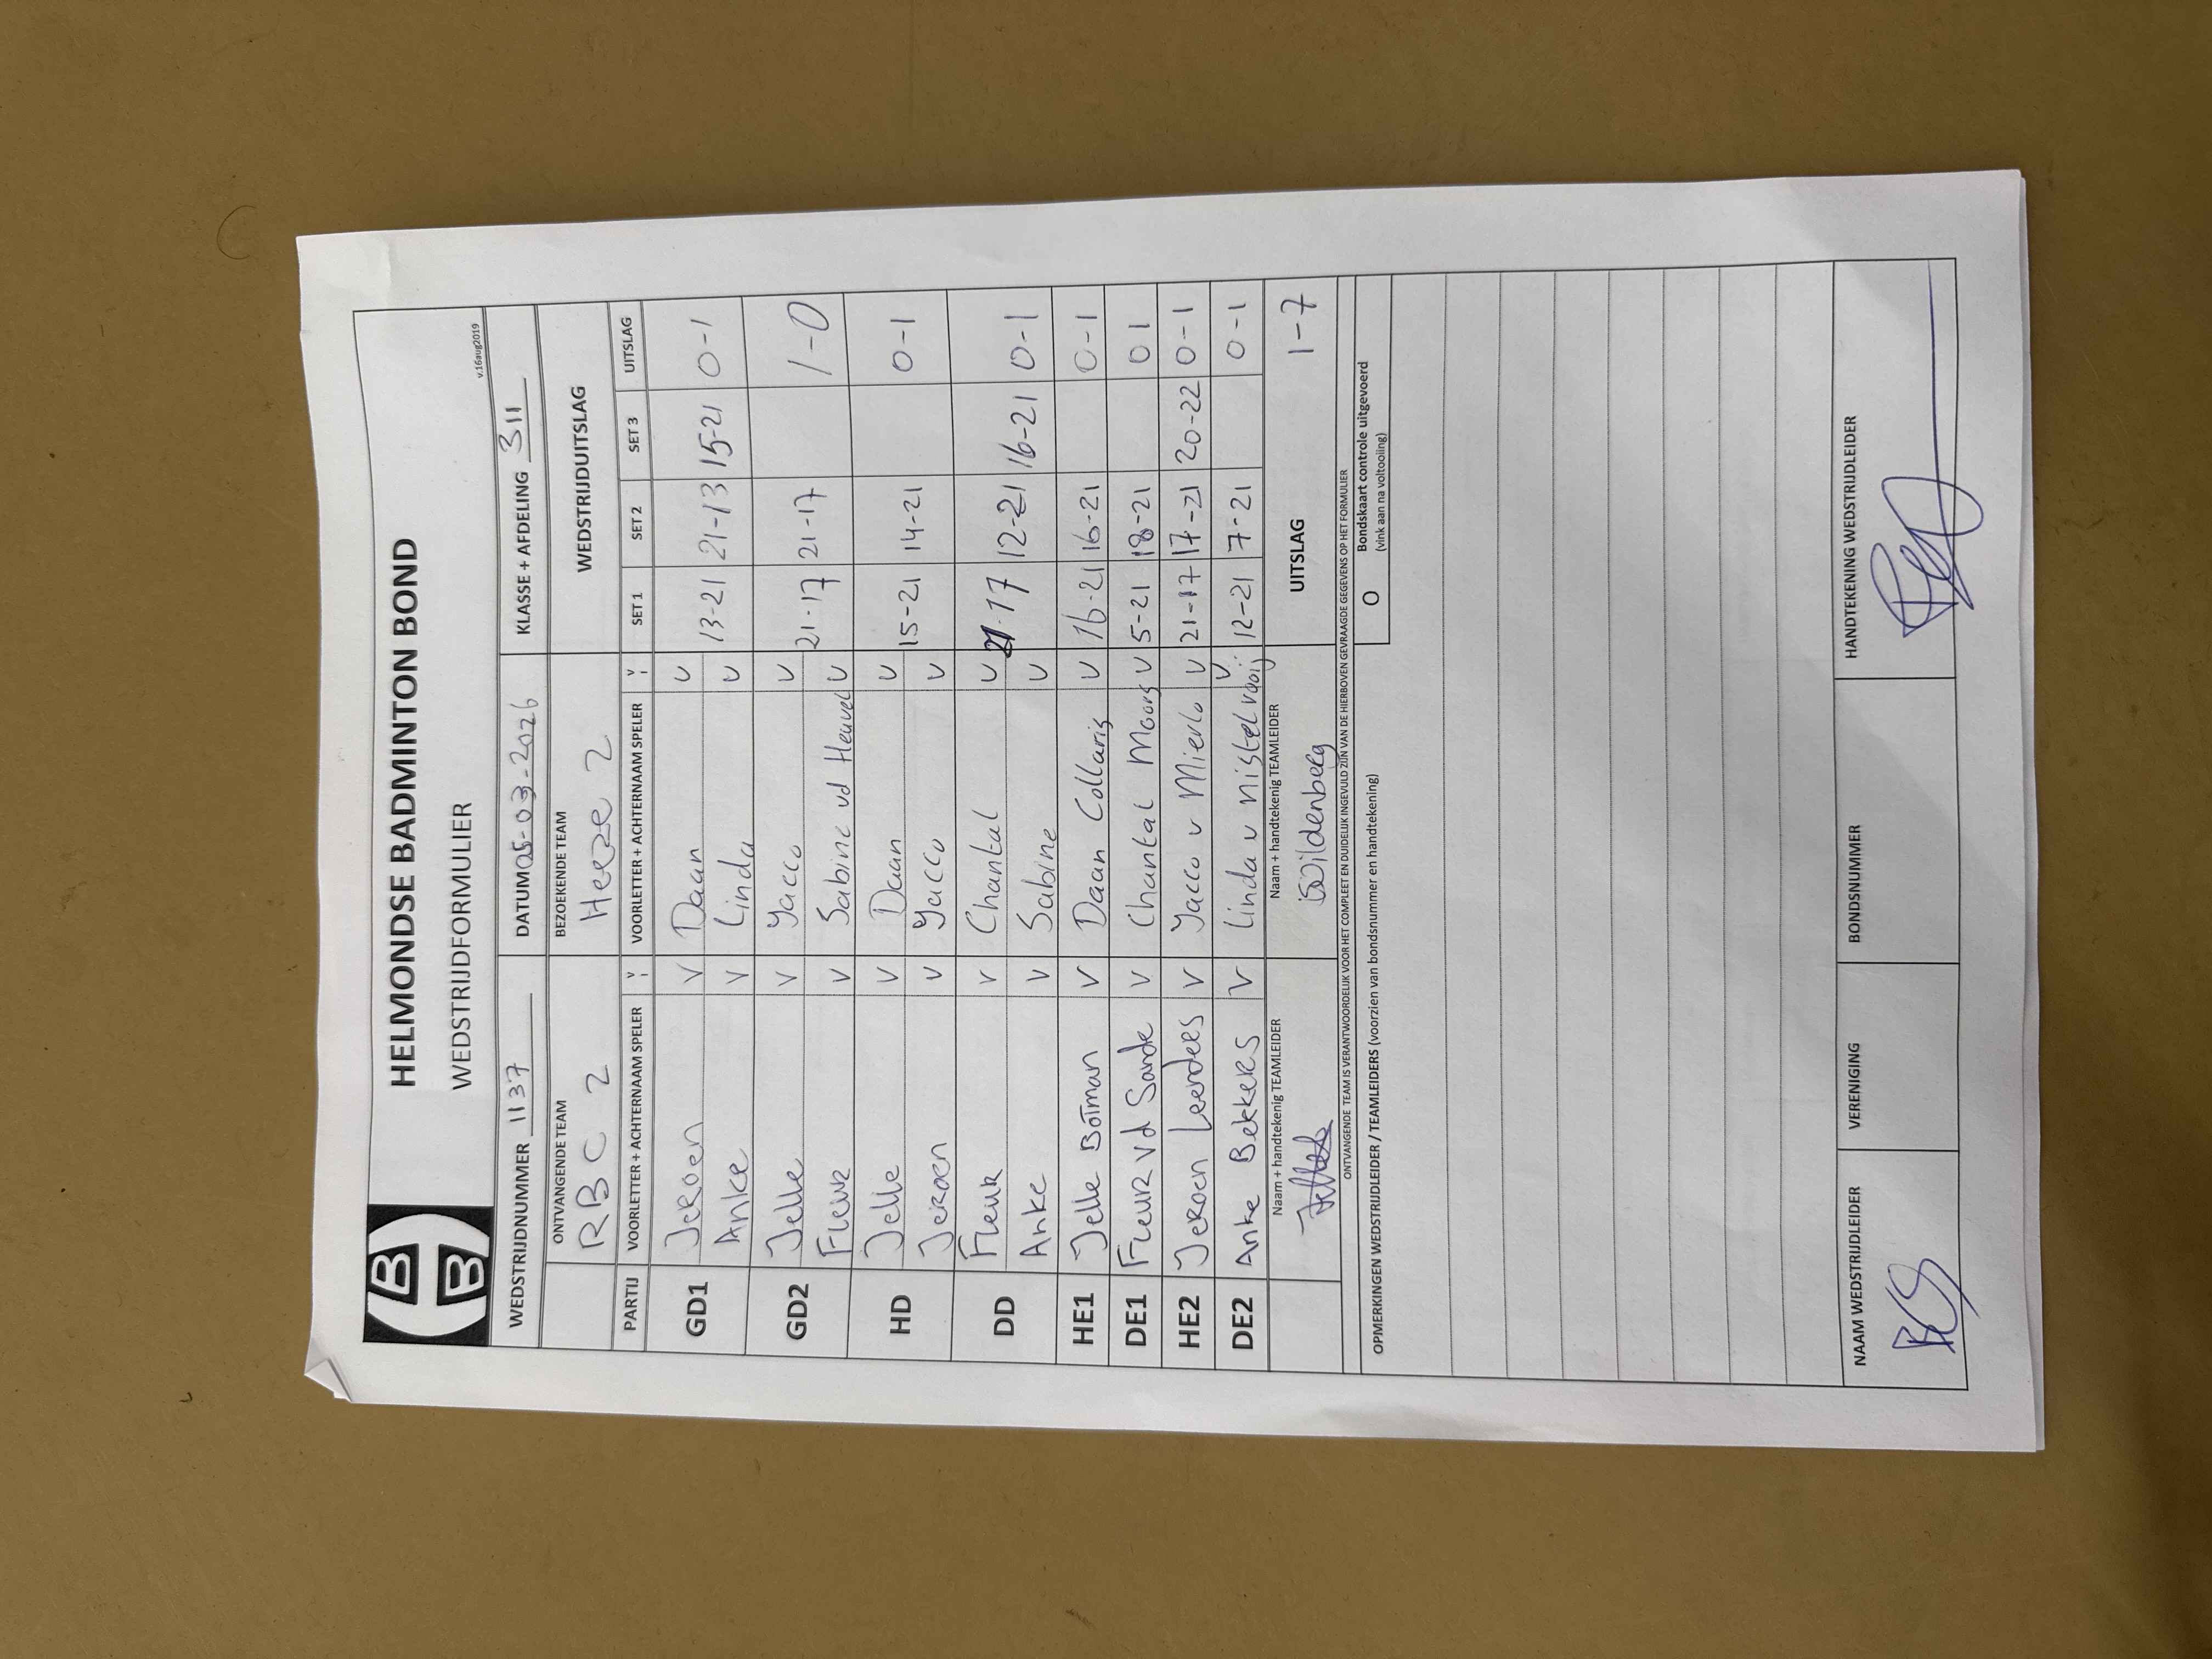 HELMONDSE BADMINTON BOND
WEDSTRIJDFORMULIER
v.16aug2019
WEDSTRIJDNUMMER 1137 DATUM 05-03-2026 KLASSE + AFDELING 311
ONTVANGENDE TEAM BEZOEKENDE TEAM WEDSTRIJDUITSLAG
RBC 2 Heeze 2
PARTIJ VOORLETTER + ACHTERNAAM SPELER V VOORLETTER + ACHTERNAAM SPELER V SET 1 SET 2 SET 3 UITSLAG
GD1 Jeroen V Daan V 13-21 21-13 15-21 0-1
Anke V Linda V
GD2 Jelle V Yacco V 21-17 21-17 1-0
Fleur V Sabine vd Heuvel V
HD Jelle V Daan V 15-21 14-21 0-1
Jeroen V Yacco V
DD Fleur V Chantal V 21-17 12-21 16-21 0-1
Anke V Sabine V
HE1 Jelle Botman V Daan Collaris V 16-21 16-21 0-1
DE1 Fleur vd Sande V Chantal Moors V 5-21 18-21 0 1
HE2 Jeroen Leenders V Yacco v Mierlo V 21-17 17-21 20-22 0-1
DE2 Anke Bekkers V Linda v Nistelrooij V 12-21 7-21 0-1
Naam + handtekenig TEAMLEIDER Naam + handtekenig TEAMLEIDER UITSLAG 1-7
Wildenberg
ONTVANGENDE TEAM IS VERANTWOORDELIJK VOOR HET COMPLEET EN DUIDELIJK INGEVULD ZIJN VAN DE HIERBOVEN GEVRAAGDE GEGEVENS OP HET FORMULIER
O Bondskaart controle uitgevoerd
(vink aan na voltooiing)
OPMERKINGEN WEDSTRIJDLEIDER / TEAMLEIDERS (voorzien van bondsnummer en handtekening)
NAAM WEDSTRIJDLEIDER VERENIGING BONDSNUMMER HANDTEKENING WEDSTRIJDLEIDER